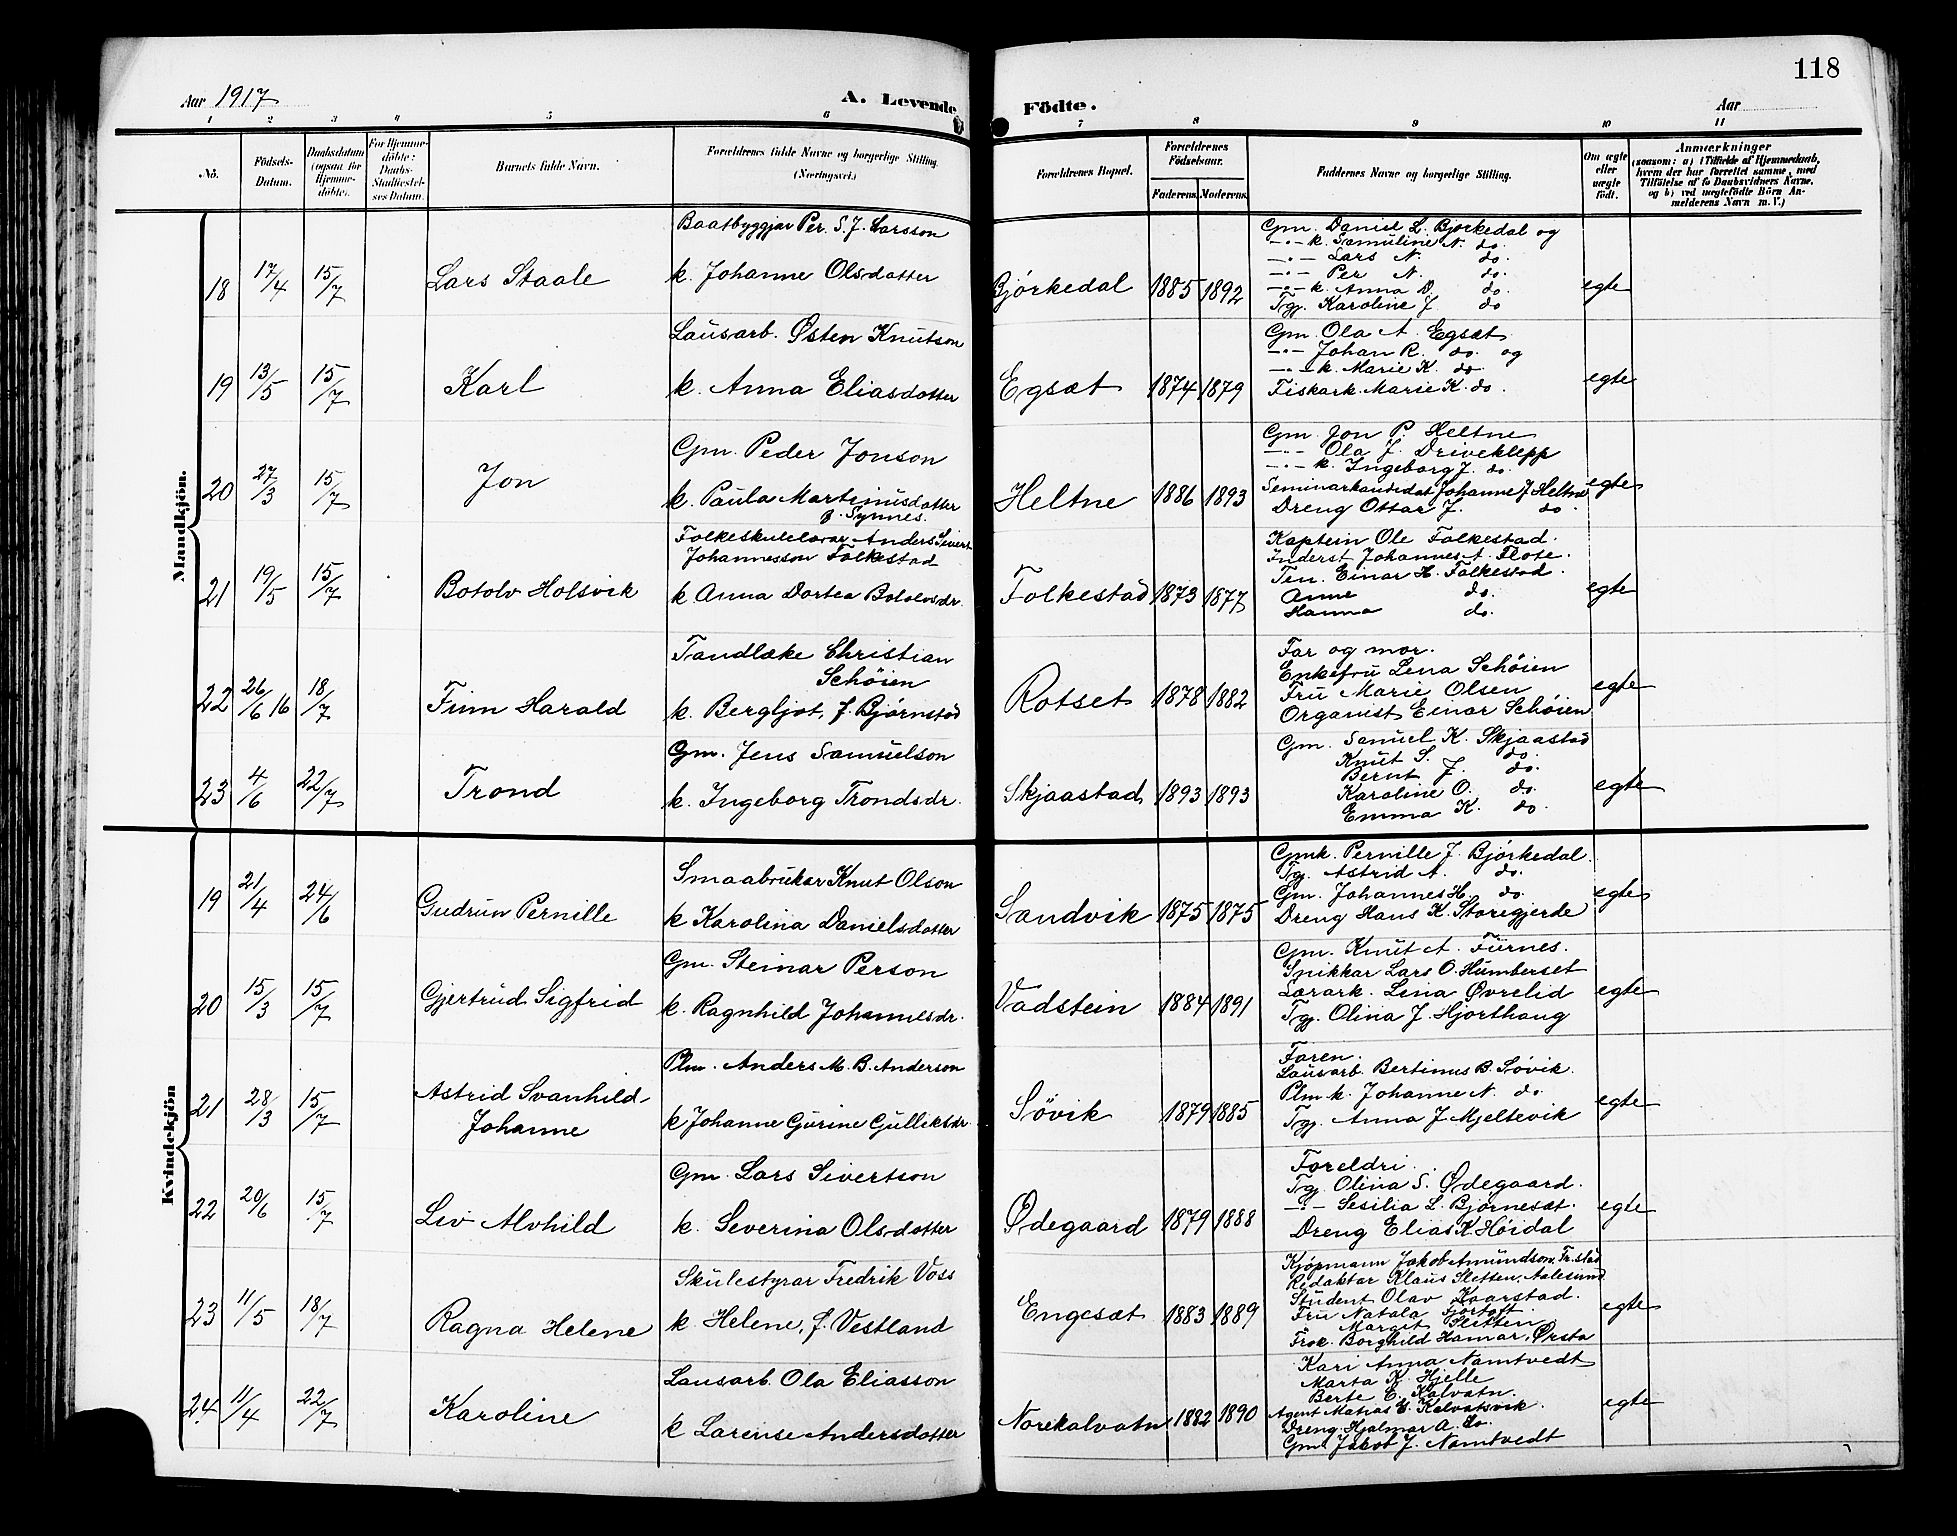 118
Aar 1917
A. Levende
Födte.
Aar
1 2 3 4 5 6 7 8 9 10 11
No.
Födsels-Datum.
Daabsdatum (ogsaa for Hjemmedöbte).
For Hjemmedöbte: Daabs-Stadfæstelses Datum.
Barnets fulde Navn.
Forældrenes fulde Navne og borgerlige Stilling. (Næringsvei.)
Forældrenes Bopæl.
Forældrenes Födselsaar.
Faderens. Moderens.
Faddernes Navne og borgerlige Stilling.
Om ægte eller uægte födt.
Anmærkninger
(saasom: a) i Tilfælde af Hjemmedaab, hvem der har forrettet samme, med Tilföielse af to Daabsvidners Navne, og b) ved uægtefödte Börn Anmelderens Navn m. V.)
Mandkjön.
18 17/4 15/7 Lars Staale
Baatbyggjar Per. S. J. Larsson
k. Johanne Olsdatter
Bjørkedal 1885 1892
Gm. Daniel L. Bjørkedal og
-"- k. Samuline N. do.
-"- Lars N. do.
-"- Per N. do.
-"- k. Anna D. do.
Tgj. Karoline J. do
egte
19 13/5 15/7 Karl
Lausarb. Østen Knutson
k. Anna Eliasdotter
Egsæt 1874 1879
Gm. Ola A. Egsæt
-"- Johan R. do. og
-"- k. Marie K. do.
Fiskark. Marie K. do.
egte
20 27/3 15/7 Jon
Gm. Peder Jonson
k. Paula Martinusdotter
f. Synnes.
Heltne 1886 1893
Gm. Jon P. Heltne
-"- Ola J. Driveklepp
-"- k. Ingeborg J. do.
Seminarkandidat Johanne J Heltne
Dreng Ottar J. do.
egte
21 19/5 15/7 Botolv Holsvik
Folkeskulelærar Anders Sivert
Johannesson Folkestad
k. Anna Dortea Botolvsdr.
Folkestad 1873 1877
Kaptein Ole Folkestad.
Inderst Johannes A. Flote.
Ten. Einar H. Folkestad.
Anne do.
Hanna do.
egte
22 26/6 16 18/7 Finn Harald
Tandlæke Christian
Schöien
k. Bergljot, f. Bjørnstad
Rotset 1878 1882
Far og mor.
Enkefru Lena Schöien
Fru Marie Olsen
Organist Einar Schöien
egte
23 4/6 22/7 Trond
Gm. Jens Samuelson
k. Ingeborg Trondsdr.
Skjaastad 1893 1893
Gm. Samuel K. Skjaastad
Knut S. do.
Bernt J. do.
Karoline O. do.
Emma K. do.
egte
Kvindekjön
19 21/4 24/6 Gudrun Pernille
Smaabrukar Knut Olson
k Karolina Danielsdotter
Sandvik 1875 1875
Gmk. Pernille J. Bjørkedal.
Tg. Astrid A. do.
Gm. Johannes H. do
Dreng Hans K. Storegjerde
egte
20 15/3 15/7 Gjertrud Sigfrid
Gm. Steinar Person
k. Ragnhild Johannesdr.
Vadstein 1884 1891
Gm. Knut A. Furnes.
Snikkar Lars O. Humberset
Lærark. Lina Øvrelid
Tgj. Olina J. Hjorthaug
egte
21 28/3 15/7 Astrid Svanhild-
Johanne
Plm. Anders M. B. Anderson
k Johanne Gurine Gulleiksdr.
Sövik 1879 1885
Faren.
Lausarb. Bertinus B. Sövik.
Plm k. Johanne N. do.
Tgj. Anna J Mjeltevik
egte
22 20/6 15/7 Liv Alvhild
Gm. Lars Sivertson
k. Severina Olsdotter
Ødegaard 1879 1888
Foreldri.
Tg. Olina S. Ødegaard.
-"- Sesilia L. Bjørnesæt.
Dreng Elias K. Höidal
egte
23 11/5 18/7 Ragna Helene
Skulestyrar Fredrik Voss
k. Helene, f. Vestland
Engesæt 1883 1889
Kjøpmann Jakob Amundson, Fr.stad
Redaktør Klaus Sletten, Aalesund
Student Olav Kaarstad.
Fru Natala Fjørtoft.
Margit Sletten.
Frøk. Borghild Hamar, Ørsta
egte
24 11/4 22/7 Karoline
Lausarb. Ola Eliasson
k Larense Andersdotter
Norekalvatn 1882 1890
Kari Anna Namtvedt
Marta K. Hjelle
Berte E. Kalvatn.
Agent Matias E. Kalvatsvik.
Dreng. Hjalmar A. do.
Gm. Jakob J. Namtvedt
egte